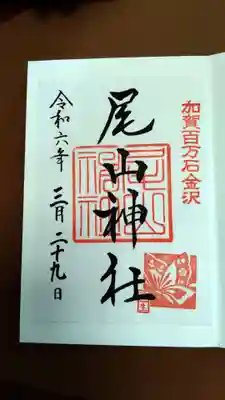 加賀百万石金沢
尾山神社
令和六年 三月二十九日